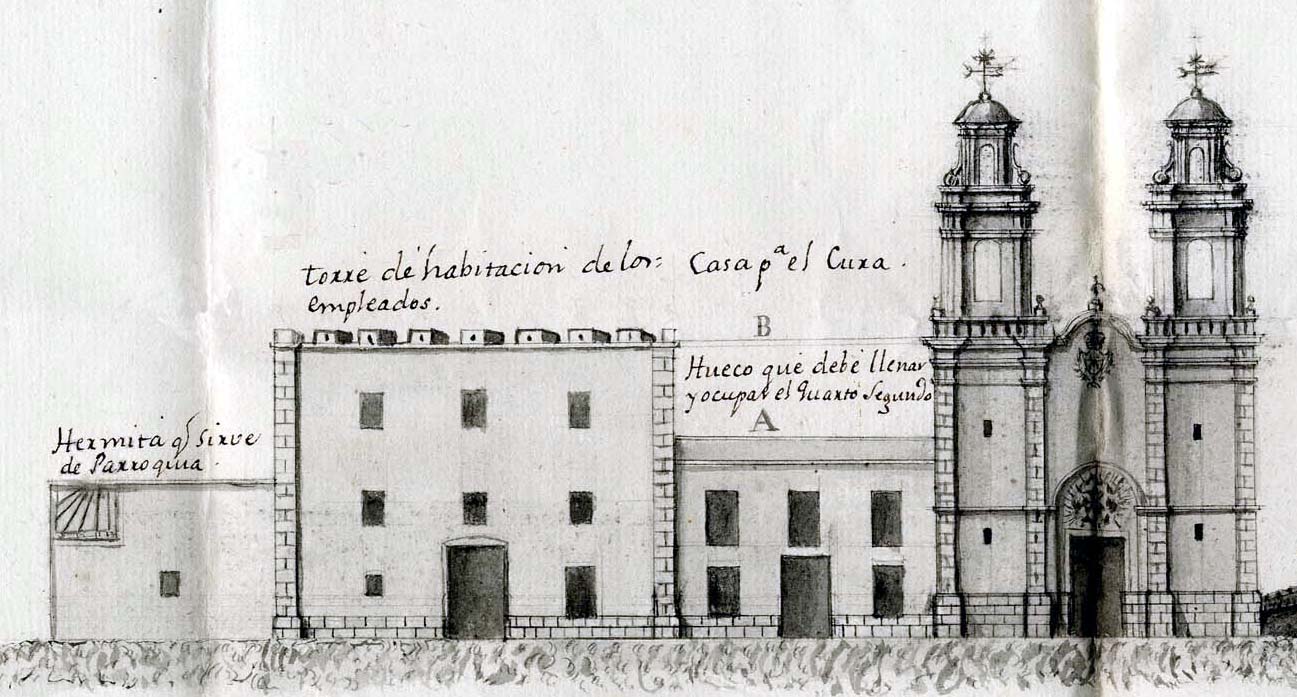 Torre de habitacion de los
empleados.
Casa pª el Cura.
B
Hueco que debe llenar
y ocupar el Quarto Segundo
A
Hermita q sirve
de Parroquia.